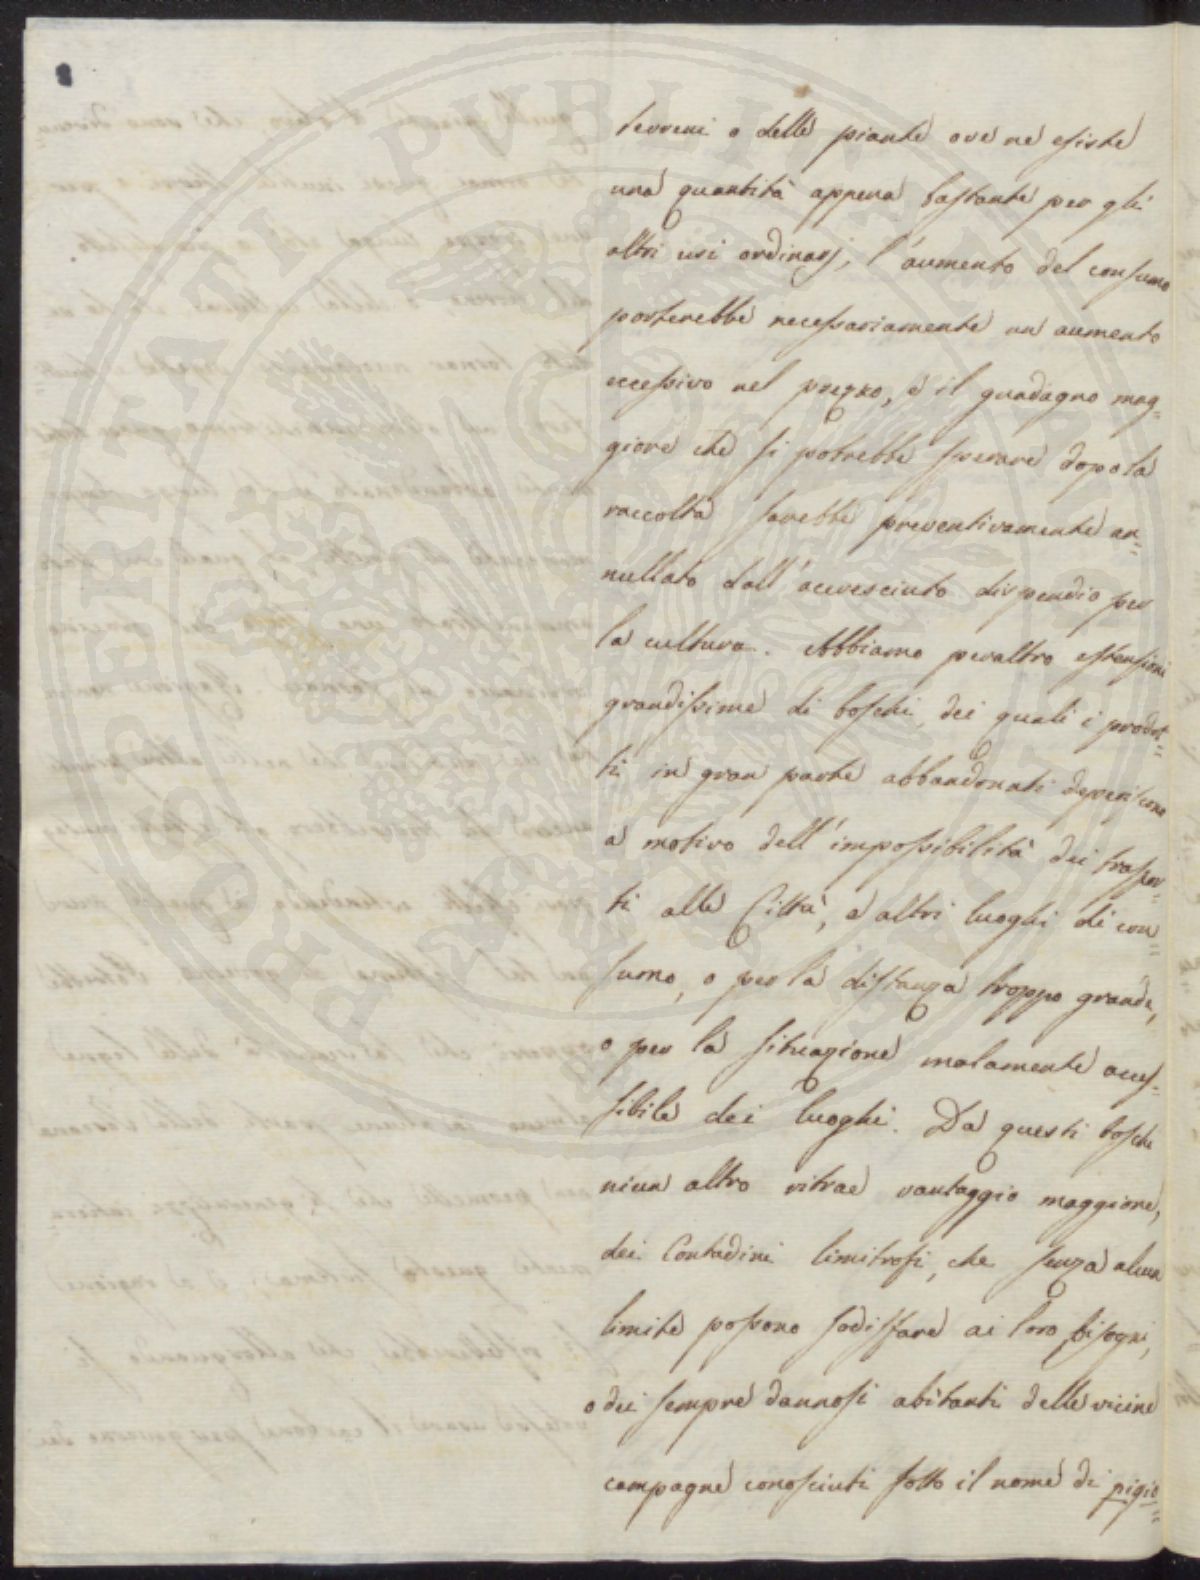 terreni o delle piante ove ne esiste
una quantità appena bastante per gli
altri usi ordinarj, l'aumento del consumo
porterebbe necessariamente un aumento
eccessivo nel prezzo, e il guadagno mag=
giore che si potrebbe sperare dopo la
raccolta sarebbe preventivamente an=
nullato dall'accresciuto dispendio per
la cultura. Abbiamo peraltro estensioni
grandissime di boschi, dei quali i prodot=
ti in gran parte abbandonati deperiscono
a motivo dell'impossibilità dei traspor=
ti alle Città, e altri luoghi di con=
sumo, o per la distanza troppo grande,
o per la situazione malamente acces=
sibile dei luoghi. Da questi boschi
niun altro ritrae vantaggio maggiore,
dei Contadini limitrofi, che senza alcun
limite possono sodisfare ai loro bisogni,
o dei sempre dannosi abitanti delle vicine
campagne conosciuti sotto il nome di pigio=
PROSPERITATI PVBLICAE AVGENDAE